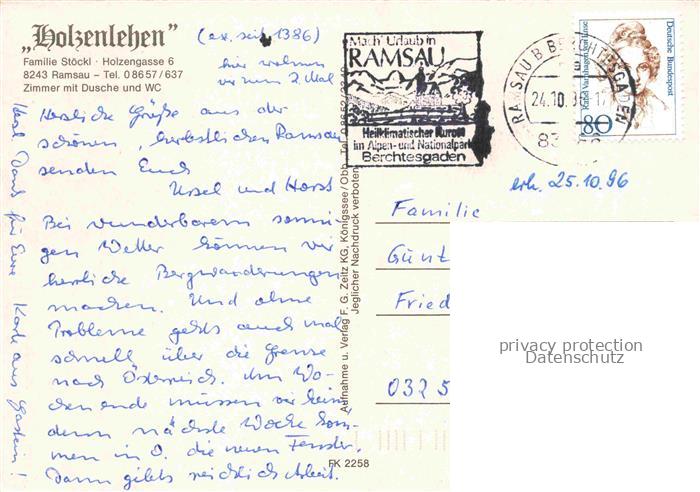 „Holzenlehen"
Familie Stöckl · Holzengasse 6
8243 Ramsau – Tel. 0 86 57 / 637
Zimmer mit Dusche und WC
(ex. seit 1386)
hier wohnen
wir zum 2. Mal
Herzliche Grüße aus der
schönen, herbstlichen Ramsau
senden Euch
Ursel und Horst
Bei wunderbarem sonni-
gen Wetter können wir
herrliche Bergwanderungen
machen. Und ohne
Probleme gehts auch mal
schnell über die Grenze
nach Österreich. Am Wo-
chenende müssen wir heim,
denn nächste Woche kom-
men in O. die neuen Fenster.
Dann gibts reichlich Arbeit.
Herzl. Dank für Eure Karte aus Gastein!
Aufnahme u. Verlag F. G. Zeitz KG, Königssee/Obb. Tel.
Jeglicher Nachdruck verboten
FK 2258
Mach' Urlaub in
RAMSAU
Heilklimatischer Kurort
im Alpen- und Nationalpark
Berchtesgaden
RAMSAU B BERCHTESGADEN
24.10.
83
Deutsche Bundespost
Rahel Varnhagen von Ense
80
erh. 25.10.96
Familie
Günt
Fried
0325
privacy protection
Datenschutz